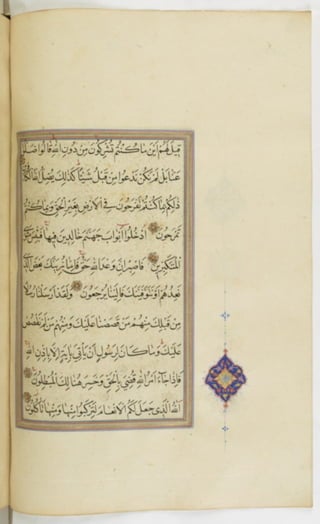 قِيلَ لَهُمْ أَيْنَ مَا كُنْتُمْ تُشْرِكُونَ مِنْ دُونِ اللَّهِ قَالُوا ضَلُّوا
عَنَّا بَلْ لَمْ نَكُنْ نَدْعُوا مِنْ قَبْلُ شَيْئًا كَذَلِكَ يُضِلُّ اللَّهُ الْكَافِرِينَ
ذَلِكُمْ بِمَا كُنْتُمْ تَفْرَحُونَ فِي الْأَرْضِ بِغَيْرِ الْحَقِّ وَبِمَا كُنْتُمْ
تَمْرَحُونَ ادْخُلُوا أَبْوَابَ جَهَنَّمَ خَالِدِينَ فِيهَا فَبِئْسَ مَثْوَى
الْمُتَكَبِّرِينَ فَاصْبِرْ إِنَّ وَعْدَ اللَّهِ حَقٌّ فَإِمَّا نُرِيَنَّكَ بَعْضَ الَّذِي
نَعِدُهُمْ أَوْ نَتَوَفَّيَنَّكَ فَإِلَيْنَا يُرْجَعُونَ وَلَقَدْ أَرْسَلْنَا رُسُلًا
مِنْ قَبْلِكَ مِنْهُمْ مَنْ قَصَصْنَا عَلَيْكَ وَمِنْهُمْ مَنْ لَمْ نَقْصُصْ
عَلَيْكَ وَمَا كَانَ لِرَسُولٍ أَنْ يَأْتِيَ بِآيَةٍ إِلَّا بِإِذْنِ اللَّهِ
فَإِذَا جَاءَ أَمْرُ اللَّهِ قُضِيَ بِالْحَقِّ وَخَسِرَ هُنَالِكَ الْمُبْطِلُونَ
اللَّهُ الَّذِي جَعَلَ لَكُمُ الْأَنْعَامَ لِتَرْكَبُوا مِنْهَا وَمِنْهَا تَأْكُلُونَ